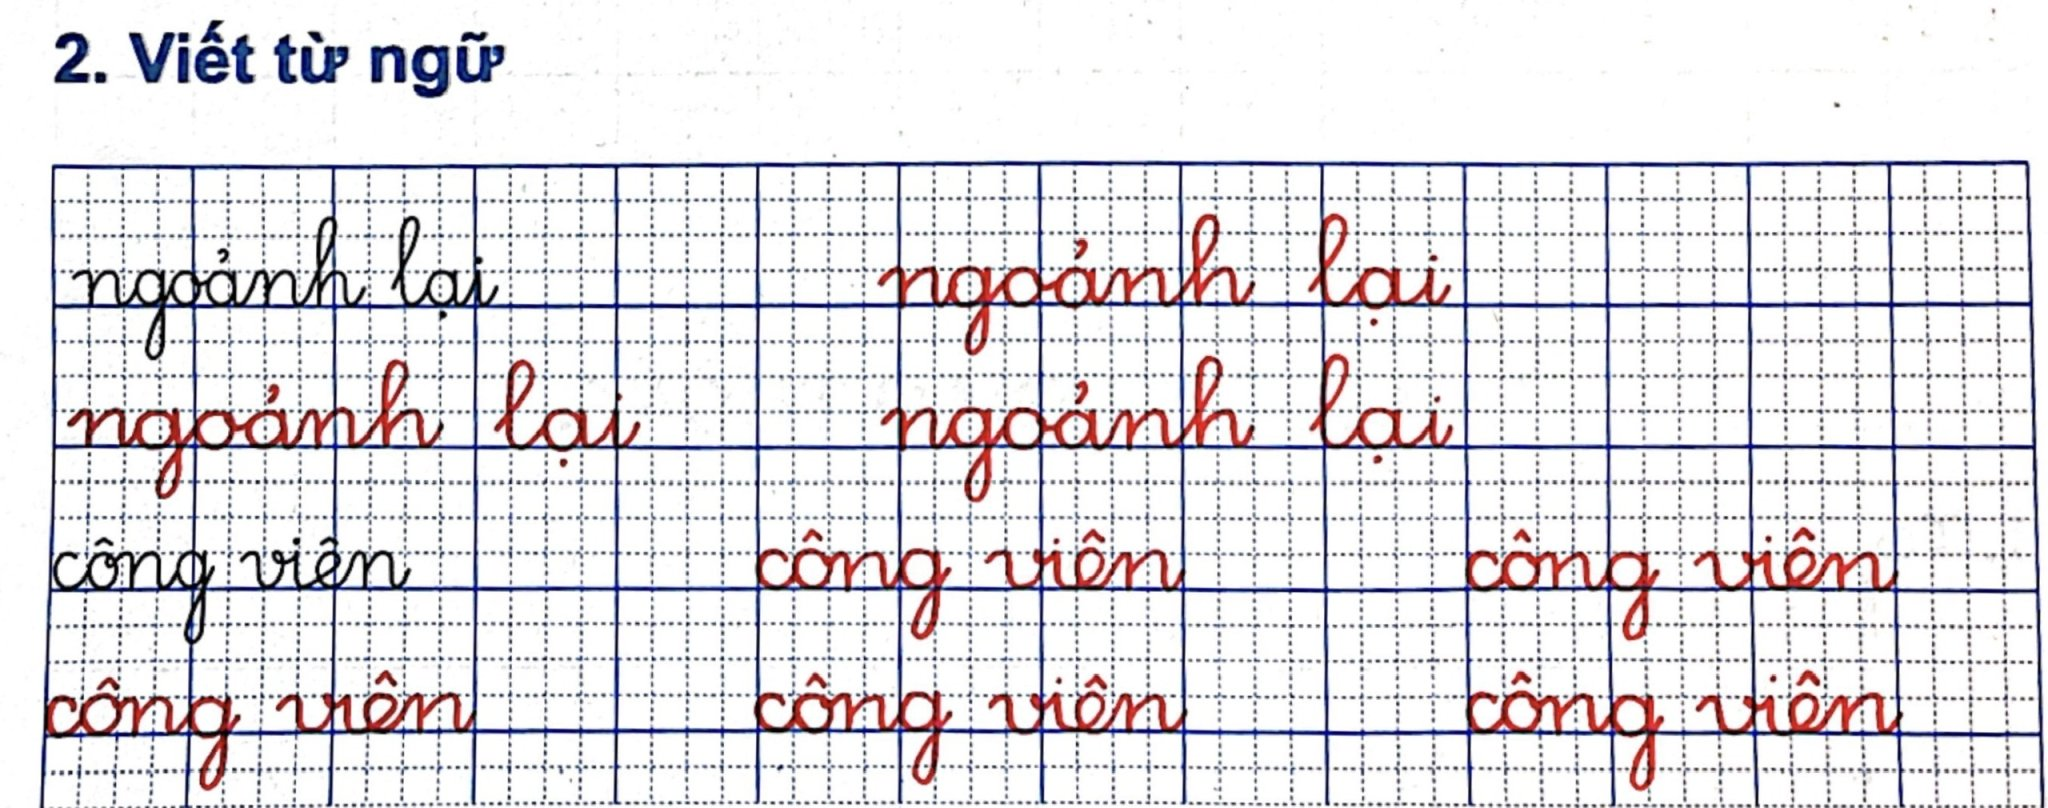 2. Viết từ ngữ
ngoảnh lại ngoảnh lại
ngoảnh lại ngoảnh lại
công viên công viên công viên
công viên công viên công viên